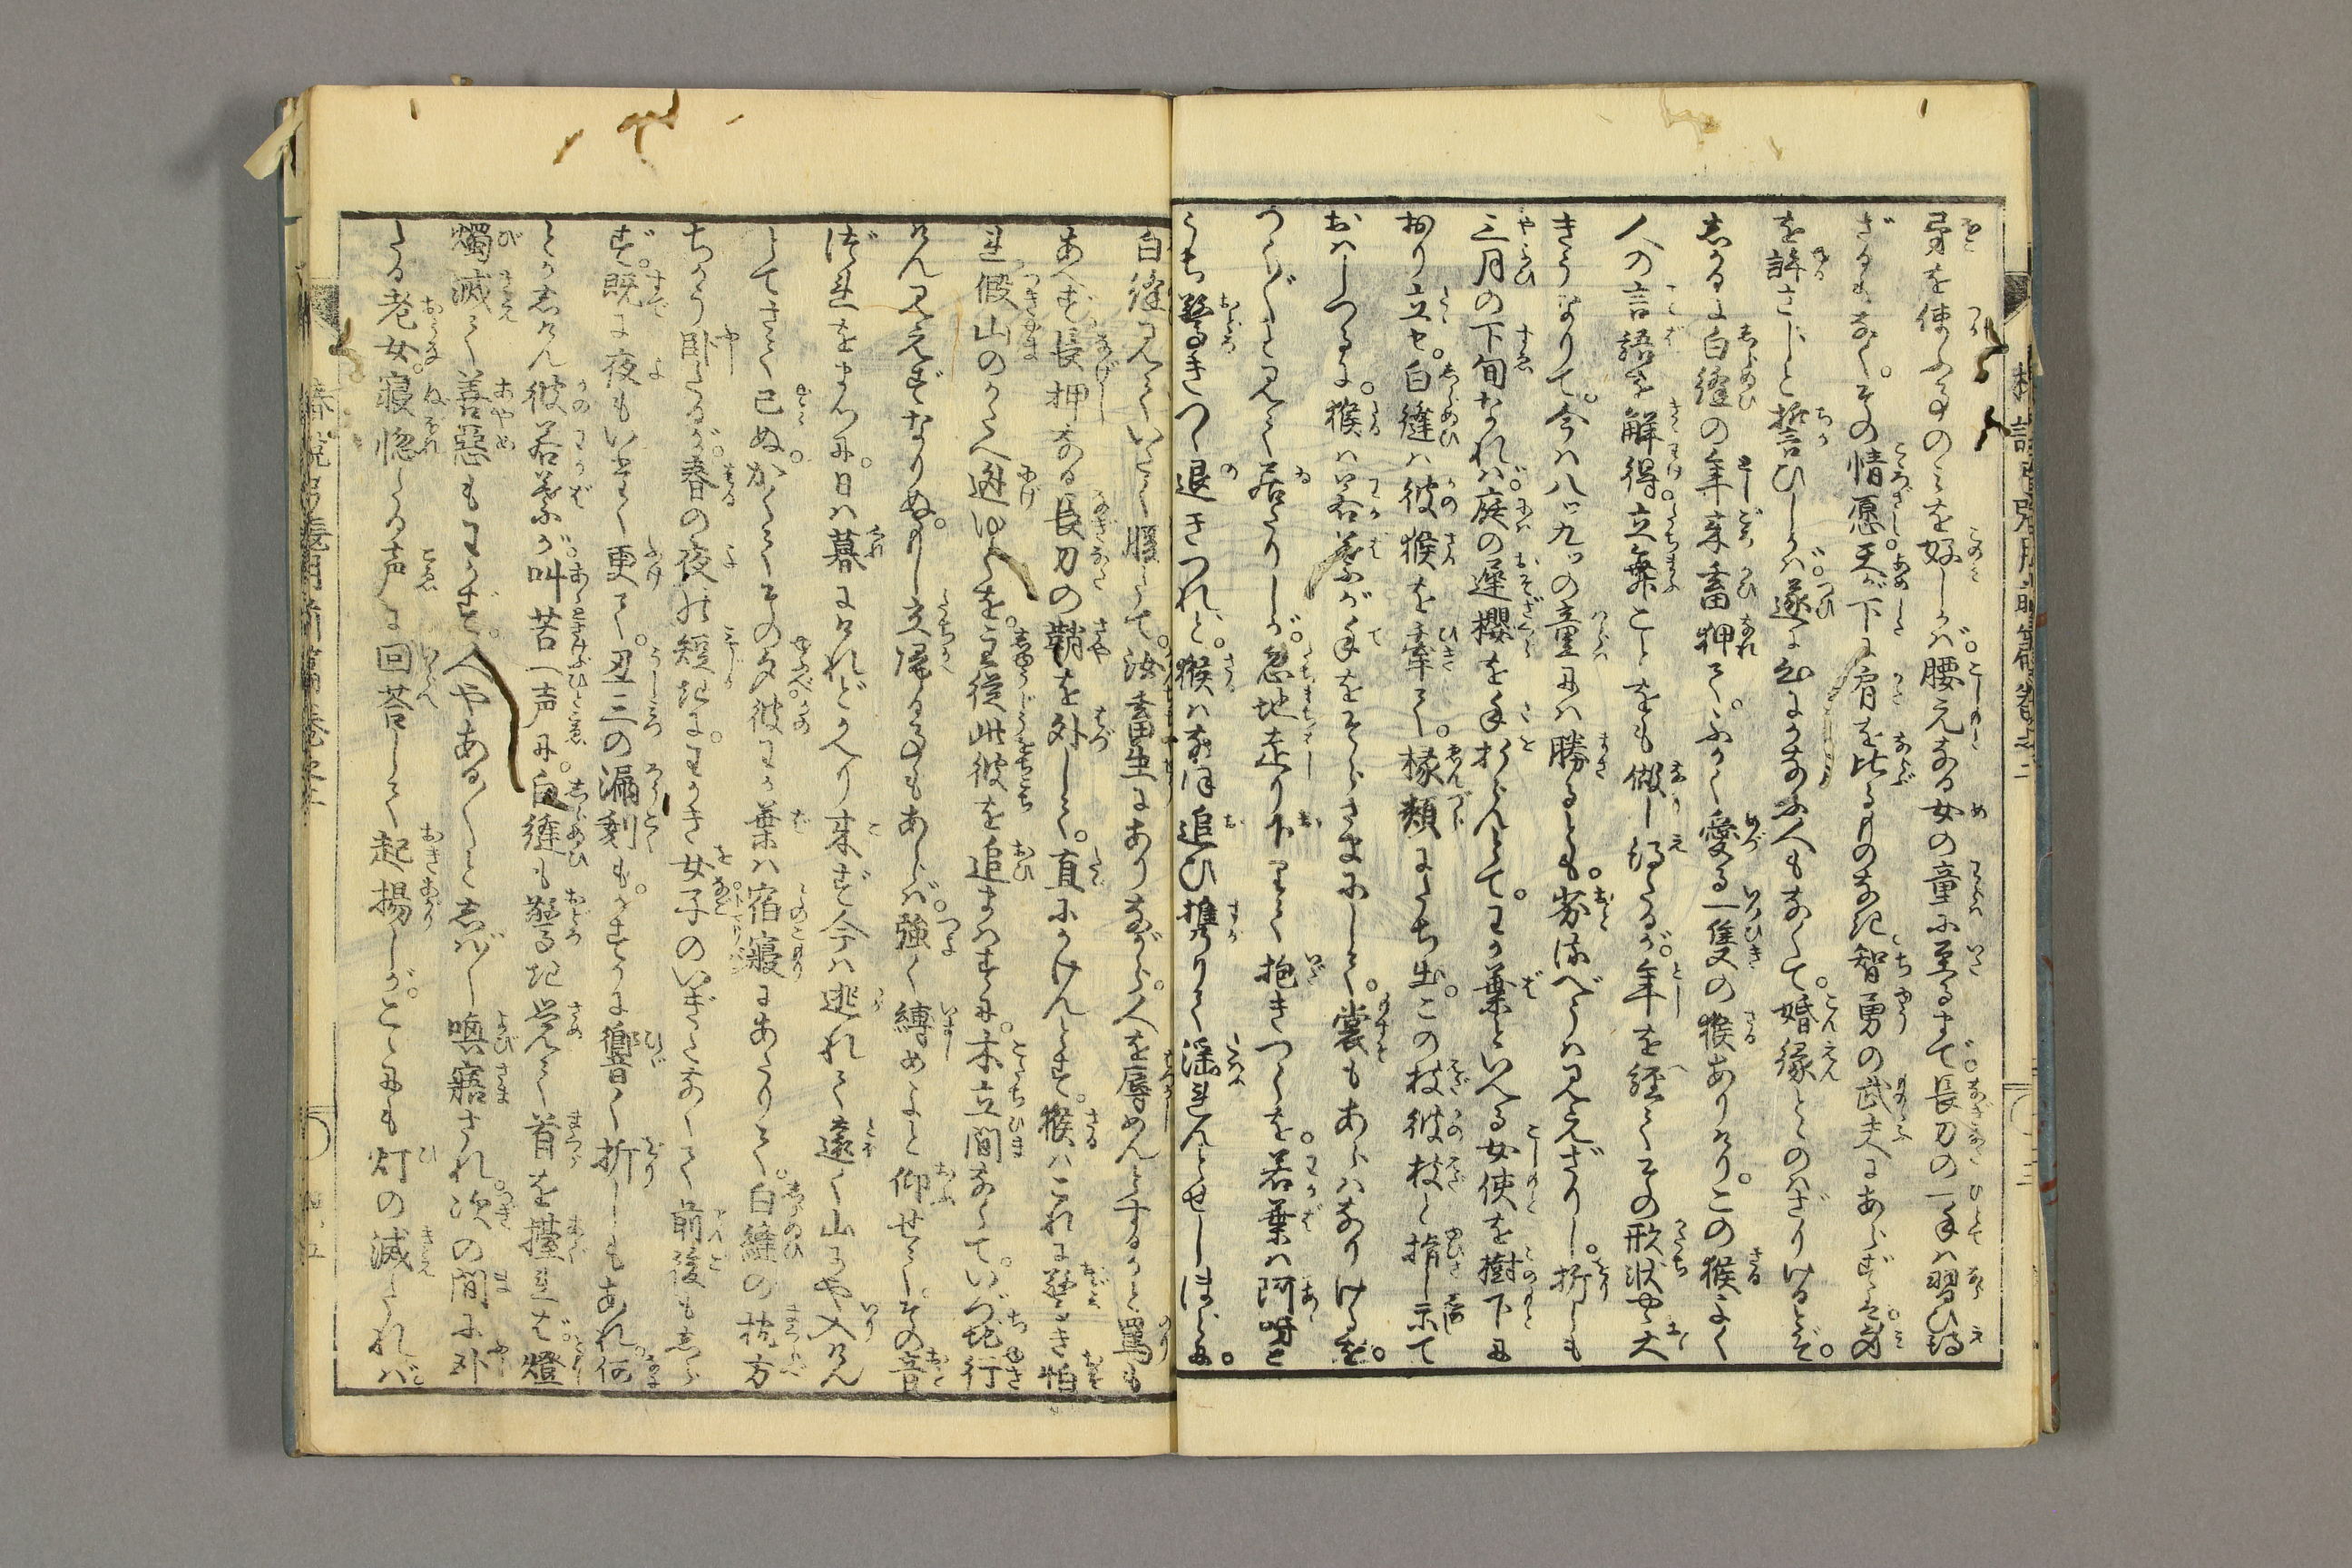 弓を使ふ事のみを好しが。腰元なる女の童に至るまで。長刀の一手は習ひ得
ざるもなく。その情愿。天が下に肩を比るものなき智勇の武夫にあらずは。身
を許さじと誓ひしが。遂に心にかなふ人もなくて。婚縁とゝのはざりけるとぞ。
しかるに白縫の年来畜狎て。ふかく愛る一隻の猴ありけり。この猴よく
人の言語を解得。立舞ことをも做し得たるが。年を経てその形状やゝ大
きうなりて。今は八ッ九ッの童には勝るとも。劣るべうは見えざりし。折しも
三月の下旬なれば。庭の遅桜を手折らんとて。わか葉といへる女使を樹下に
おり立せ。白縫は彼猴を牽て。椽頬にたち出。この枝彼枝と指し示て
おはしつるに。猴は若葉が手をそらさまにして。裳もあらはなりけるを。
つく〴〵と見て居たりしが。忽地走り下りて抱きつくを。若葉は阿呀と
うち驚きつゝ退きつれど。猴はなほ追ひ携りて淫れんとせしほどに。
白縫見ていたく腹たて。汝畜生にありながら。人を辱めんとするかと罵も
あへず長押なる長刀の鞘を外して。直にかけんとす。猴はこれに驚き怕
れ仮山のかたへ逃ゆくを。主従此彼を追まはすに。木立間なくて。いづ地行
けん見えずなりぬ。もし立帰る事もあらば。強く縛めよと仰せて。その音
づれをまつに。日は暮にけれどかへり来ず今は逃れて遠く山にや入けん
とてさて已ぬ。かくてその夕彼わか葉は宿寝にあたりて。白縫の枕方
ちかう臥たるが。春の夜の短きに。わかき女子のいぎたなくて前後もしら
ず。既に夜もいたく更て。丑三の漏刻も。かすかに響く折しもあれ。何
とかしけん彼若葉が。叫苦一声に。白縫も驚き覚て首を擡れば。燈
燭滅て善悪もわかず。人やある〳〵としば〳〵喚寤され。次の間に臥
たる老女。寝惚たる声に回答して起揚しが。こゝにも灯の滅たれば。